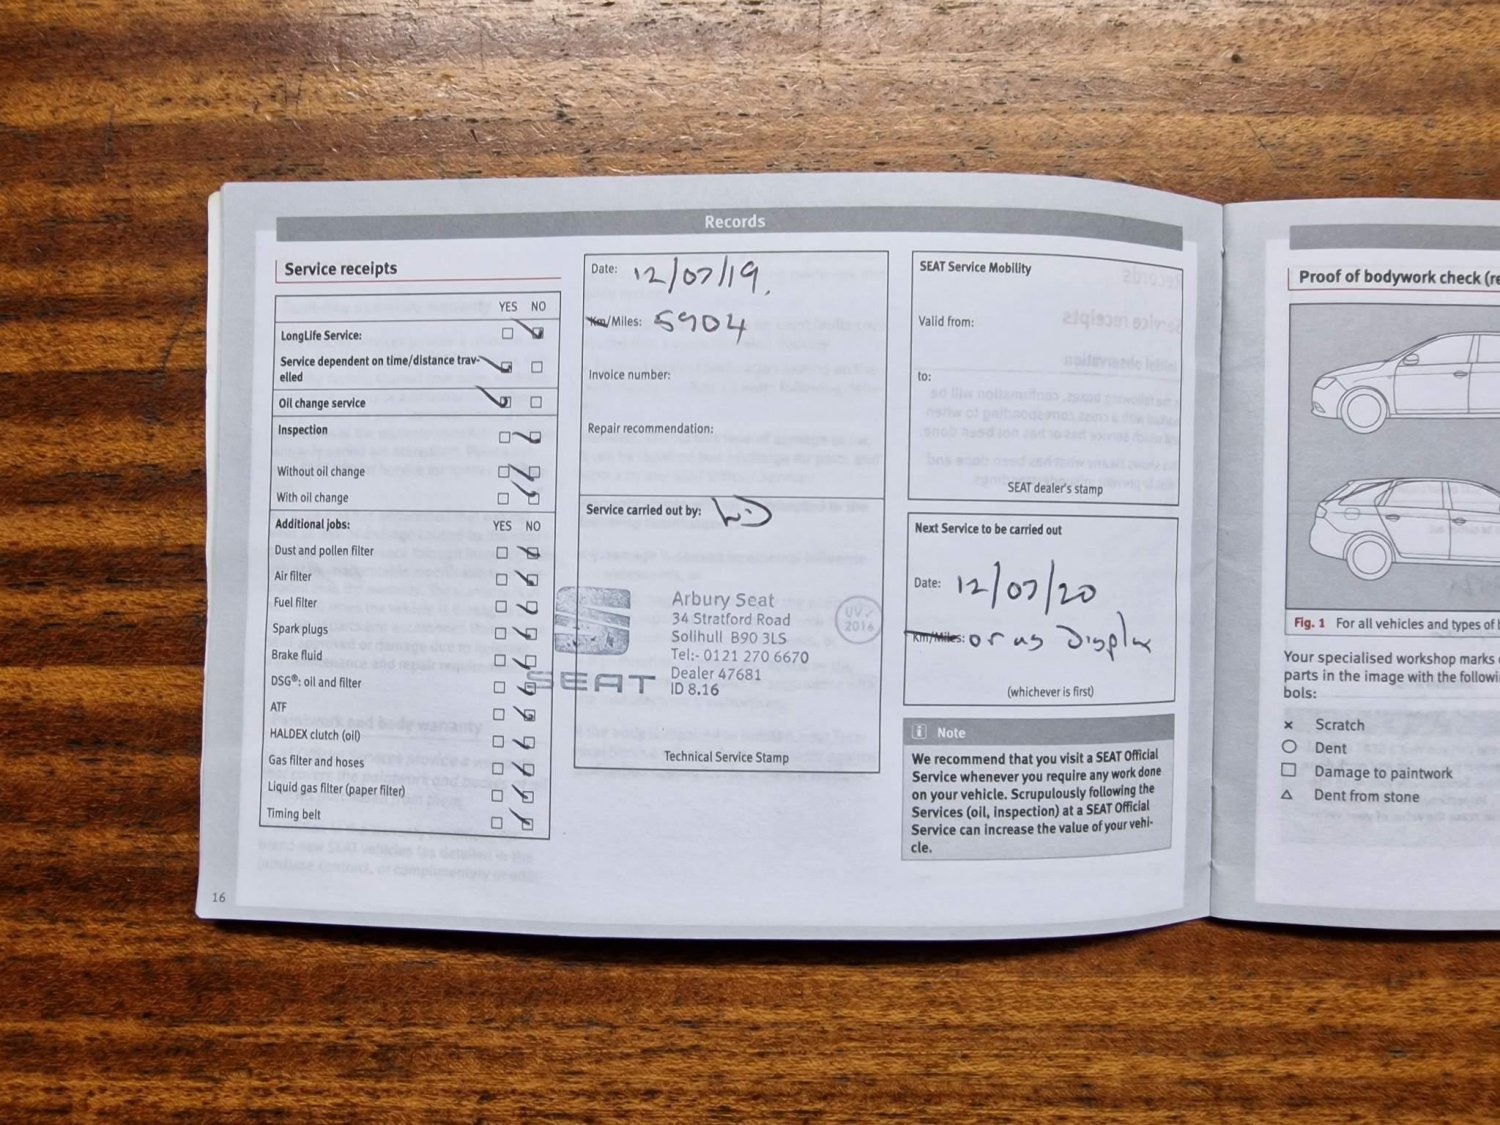 Records
Service receipts
YES NO
LongLife Service:
Service dependent on time/distance trav-
elled
Oil change service
Inspection
Without oil change
With oil change
Additional jobs: YES NO
Dust and pollen filter
Air filter
Fuel filter
Spark plugs
Brake fluid
DSG®: oil and filter
ATF
HALDEX clutch (oil)
Gas filter and hoses
Liquid gas filter (paper filter)
Timing belt
16
Date: 12/07/19.
Km/Miles: 5904
Invoice number:
Repair recommendation:
Service carried out by:
SEAT
Arbury Seat
34 Stratford Road
Solihull B90 3LS
Tel:- 0121 270 6670
Dealer 47681
ID 8.16
UV
2016
Technical Service Stamp
SEAT Service Mobility
Valid from:
to:
SEAT dealer's stamp
Next Service to be carried out
Date: 12/07/20
Km/Miles: or as Display
(whichever is first)
i Note
We recommend that you visit a SEAT Official
Service whenever you require any work done
on your vehicle. Scrupulously following the
Services (oil, inspection) at a SEAT Official
Service can increase the value of your vehi-
cle.
Proof of bodywork check (re
Fig. 1 For all vehicles and types of b
Your specialised workshop marks
parts in the image with the followi
bols:
× Scratch
○ Dent
□ Damage to paintwork
△ Dent from stone